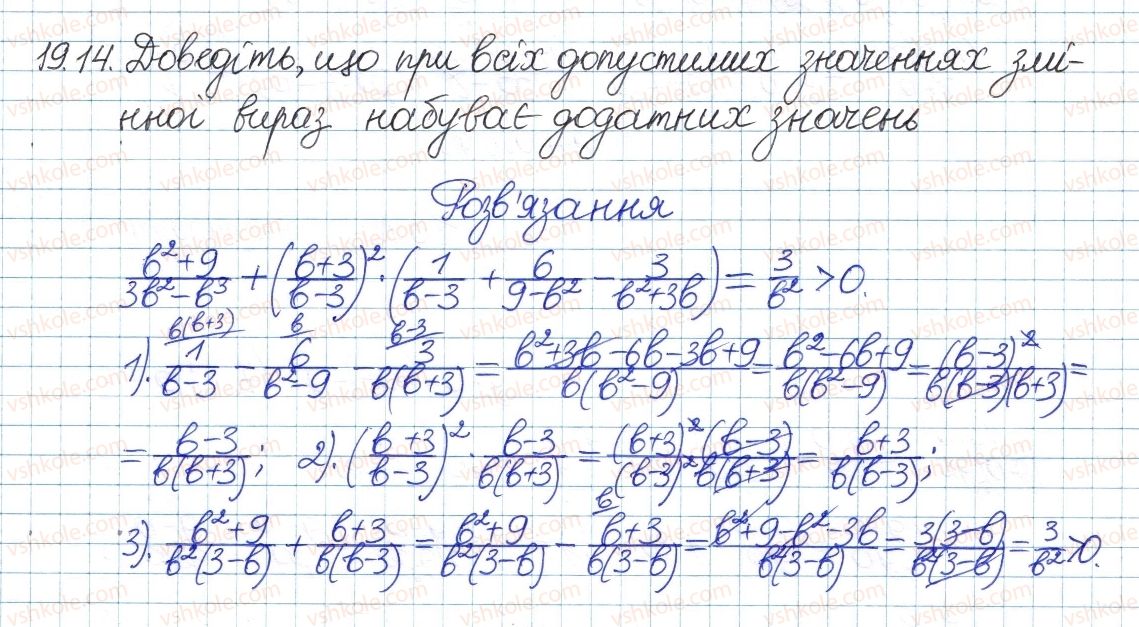 19.14. Доведіть, що при всіх допустимих значеннях змі-
нної вираз набуває додатних значень
Розв'язання
(b²+9)/(3b²-b³) + ((b+3)/(b-3))² · (1/(b-3) + 6/(9-b²) - 3/(b²+3b)) = 3/b² > 0.
1). b(b+3)/ 1/(b-3) - b/ 6/(b²-9) - b-3/ 3/(b(b+3)) = (b²+3b-6b-3b+9)/(b(b²-9)) = (b²-6b+9)/(b(b²-9)) = (b-3)²/(b(b-3)(b+3)) =
= (b-3)/(b(b+3)); 2). ((b+3)/(b-3))² · (b-3)/(b(b+3)) = ((b+3)²(b-3))/((b-3)²b(b+3)) = (b+3)/(b(b-3));
3). (b²+9)/(b²(3-b)) + (b+3)/(b(b-3)) = (b²+9)/(b²(3-b)) - b/ (b+3)/(b(3-b)) = (b²+9-b²-3b)/(b²(3-b)) = 3(3-b)/(b²(3-b)) = 3/b² > 0.